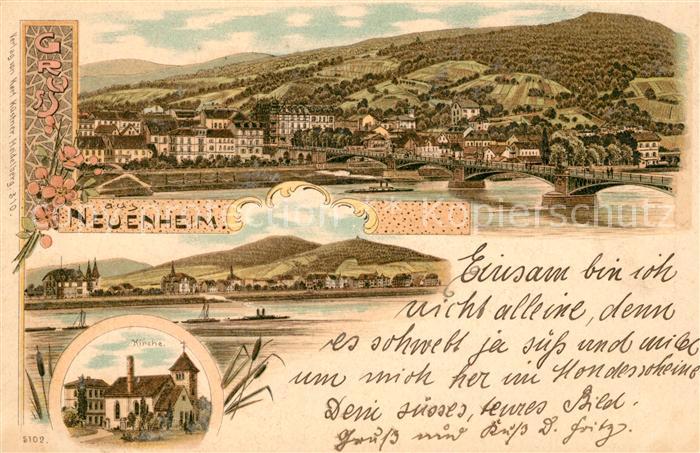 GRUSS
aus
NEUENHEIM.
Verlag von Karl Kirchner, Heidelberg. 310.
Kirche.
5102.
Einsam bin ich
nicht alleine, denn
es schwebt ja süß und mild
um mich her im Mondesscheine
Dein süsses, teures Bild.
Gruß und Kuß D. Fritz.
Copyright Kopierschutz